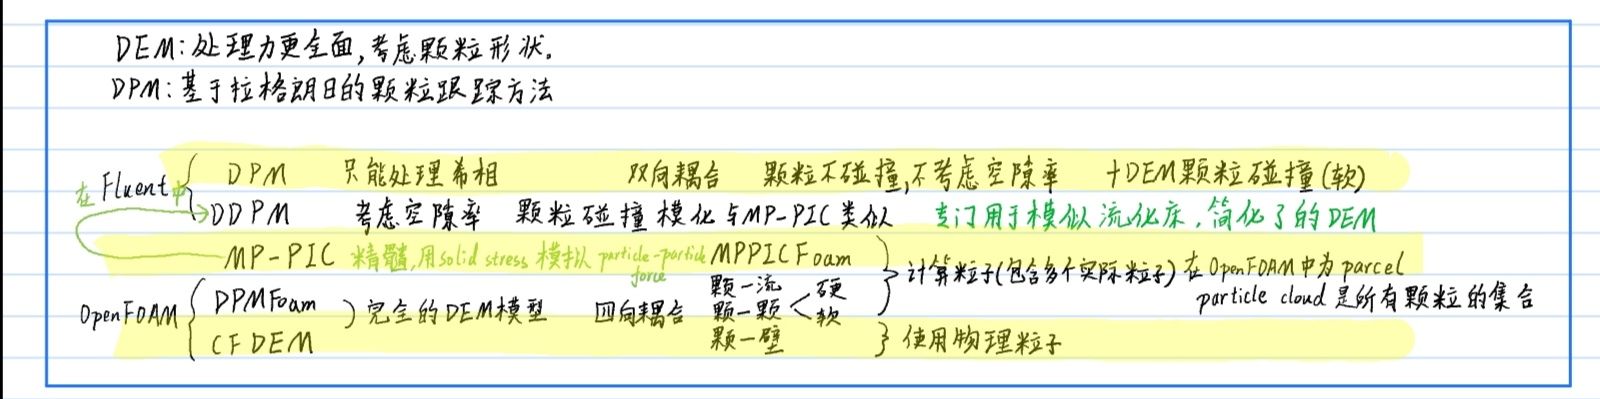 DEM:处理力更全面,考虑颗粒形状。
DPM:基于拉格朗日的颗粒跟踪方法
在Fluent中 { DPM 只能处理希相 双向耦合 颗粒不碰撞,不考虑空隙率 +DEM颗粒碰撞(软)
DDPM 考虑空隙率 颗粒碰撞模化与MP-PIC类似 专门用于模似流化床,简化了的DEM
MP-PIC 精髓,用solid stress模拟particle-particle force MPPICFoam
OpenFOAM { DPMFoam )完全的DEM模型 四向耦合 颗-流
颗-颗 < 硬 软
CFDEM 颗-壁 } 使用物理粒子
} 计算粒子(包含多个实际粒子)在OpenFOAM中为parcel
particle cloud是所有颗粒的集合